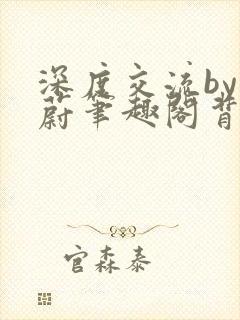 深度交流by
蔚笔趣阁背
官森泰